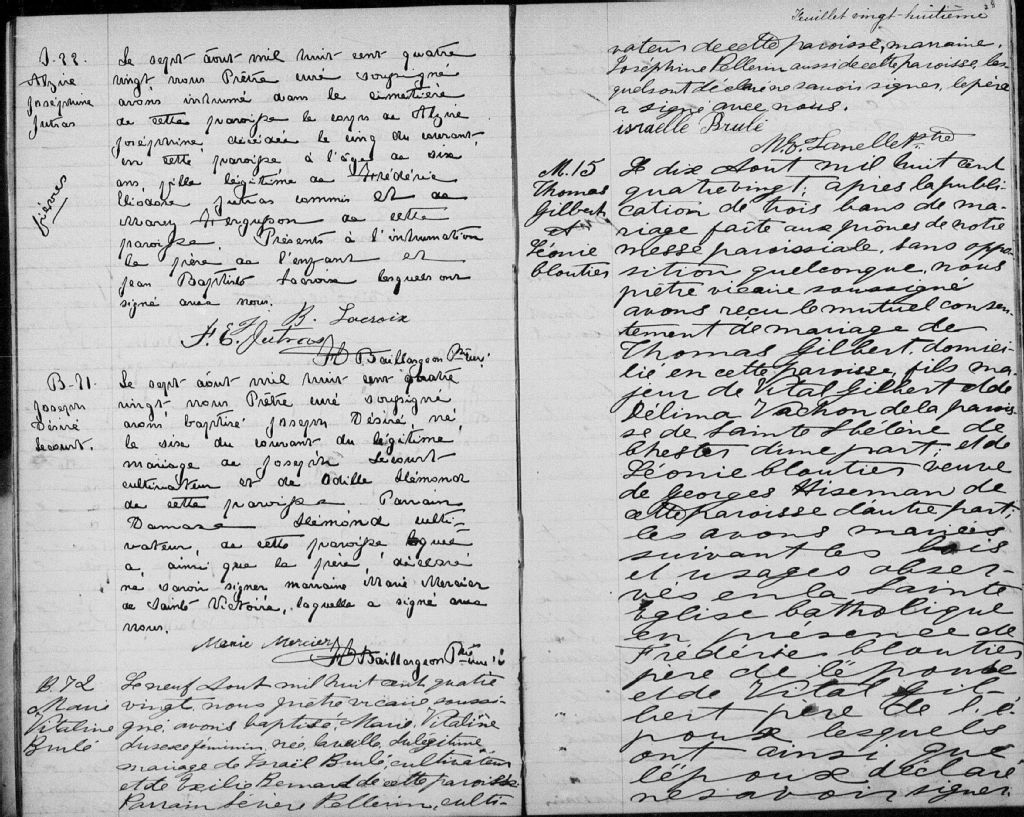 S. 22.
Alzire
Joséphine
Jutras
fièvres
Le sept août mil huit cent quatre
vingt nous Prêtre curé soussigné
avons inhumé dans le cimetière
de cette paroisse le corps de Alzire
Joséphine, décédée le cinq du courant,
en cette paroisse à l'âge de six
ans, fille légitime de Frédéric
Eliodore Jutras commis et de
Mary Ferguson de cette
paroisse. Présents à l'inhumation
le père de l'enfant et
Jean Baptiste Lacroix lesquels ont
signé avec nous.
J. B. Lacroix
F. E. Jutras
Baillargeon Ptre curé
B-71
Joseph
Désiré
Lecourt.
Le sept août mil huit cent quatre
vingt nous Prêtre curé soussigné
avons baptisé Joseph Désiré, né
le six du courant du légitime
mariage de Joseph Lecourt
cultivateur et de Odille Hémond
de cette paroisse Parrain
Damase Hémond culti-
vateur, de cette paroisse lequel
a, ainsi que le père, déclaré
ne savoir signer marraine Marie Mercier
de Sainte Victoire, laquelle a signé avec
nous.
Marie Mercier
Baillargeon Ptre curé
B. 72
Marie
Vitaline
Brulé
Le neuf Aout mil huit cent quatre
vingt, nous prêtre vicaire soussi-
gné, avons baptisé Marie Vitaline
du sexe féminin, née la veille, du légitime
mariage de Israïl Brulé, cultivateur
et de Exilie Bernard de cette paroisse
Parrain Sévère Pellerin, culti-
Feuillet vingt-huitième
28
vateur de cette paroisse, marraine,
Joséphine Pellerin aussi de cette paroisse, les
quels ont déclaré ne savoir signer, le père
a signé avec nous.
israelle Brulé
Ptre
M. 15
Thomas
Gilbert
&
Léonie
Cloutier
Le dix Aout mil huit cent
quatre vingt, après la publi
cation de trois bans de ma-
riage faite aux prônes de notre
messe paroissiale, sans oppo
sition quelconque, nous
prêtre vicaire soussigné
avons reçu le mutuel consen-
tement de mariage de
Thomas Gilbert, domici-
lié en cette paroisse, fils ma-
jeur de Vital Gilbert et de
Délima Vachon de la parois
se de Sainte Hélène de
Chester d'une part; et de
Léonie Cloutier veuve
de Georges Hiseman de
cette paroisse d'autre part;
les avons mariés
suivant les lois
et usages obser-
vés en la Sainte
Eglise Catholique
en présence de
Frédéric Cloutier
père de l'épouse
et de Vital Gil-
bert père de l'é-
poux lesquels
ont ainsi que
l'époux déclaré
ne savoir signer